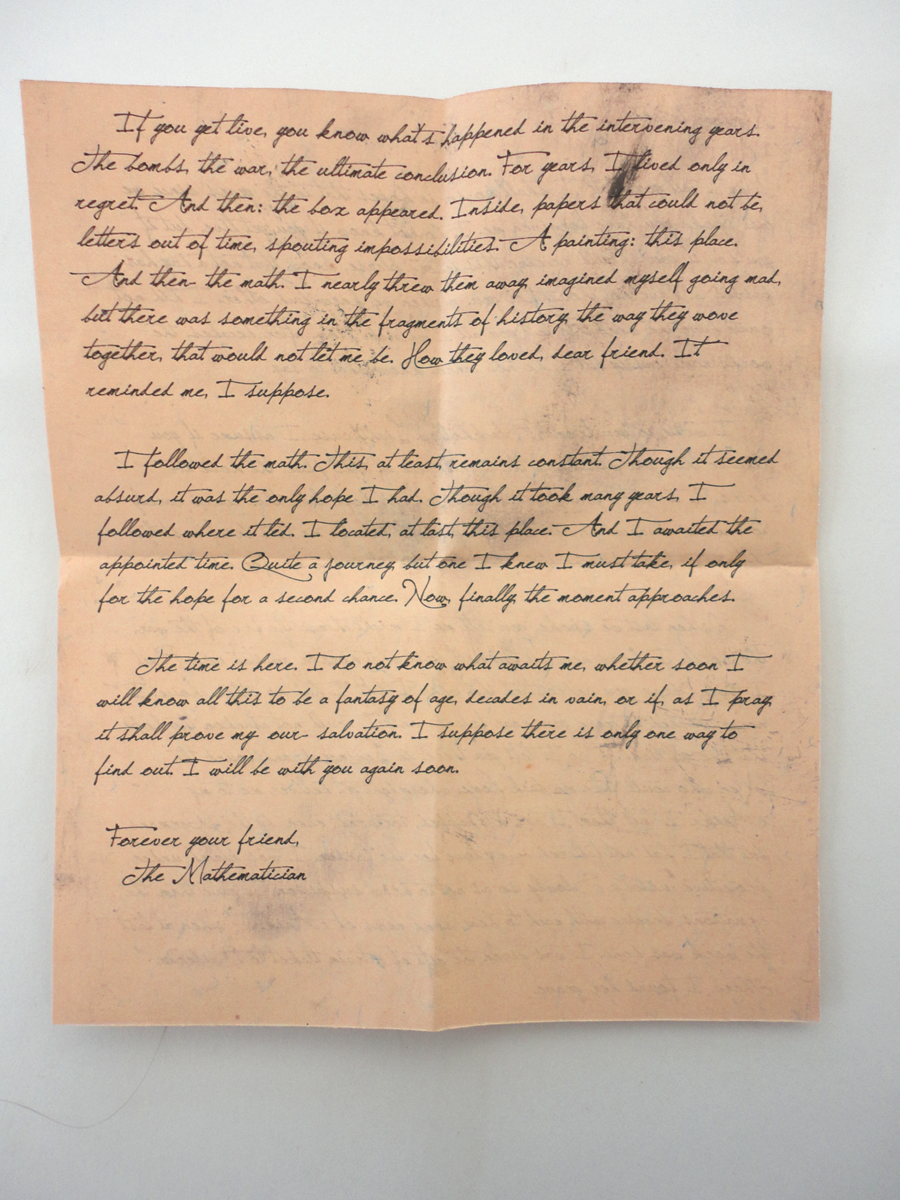 If you yet live, you know what's happened in the intervening years.
The bombs, the war, the ultimate conclusion. For years, I lived only in
regret. And then: the box appeared. Inside, papers that could not be,
letters out of time, spouting impossibilities. A painting: this place.
And then- the math. I nearly threw them away, imagined myself going mad,
but there was something in the fragments of history, the way they wove
together, that would not let me be. How they loved, dear friend. It
reminded me, I suppose.
I followed the math. This, at least, remains constant. Though it seemed
absurd, it was the only hope I had. Though it took many years, I
followed where it led. I located, at last, this place. And I awaited the
appointed time. Quite a journey, but one I knew I must take, if only
for the hope for a second chance. Now, finally, the moment approaches.
The time is here. I do not know what awaits me, whether soon I
will know all this to be a fantasy of age, decades in vain, or if, as I pray,
it shall prove my- our- salvation. I suppose there is only one way to
find out. I will be with you again soon.
Forever your friend,
The Mathematician